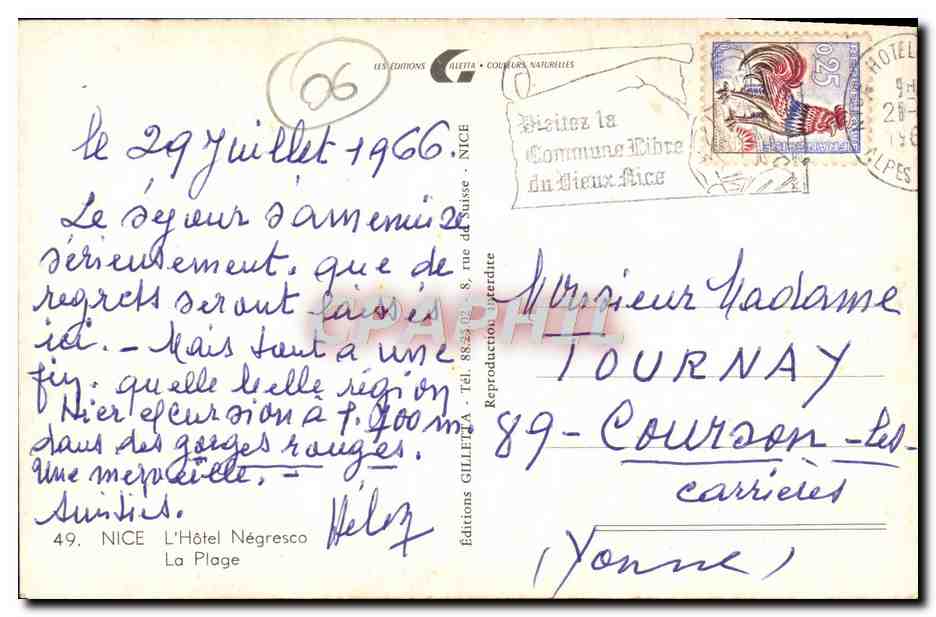 06
LES EDITIONS GILLETTA • COULEURS NATURELLES
Visitez la
Commune Libre
du Vieux Nice
0,25
HOTEL
ALPES
le 29 Juillet 1966.
Le séjour s'amenuise
sérieusement. que de
regrets seront laissés
ici. - Mais tout a une
fin. quelle belle région
Hier excursion à 1.700 m.
dans des gorges rouges.
Une merveille. -
Amitiés.
49. NICE L'Hôtel Négresco
La Plage
Editions GILLETTA - Tél. 88.25.02 - 8, rue de Suisse - NICE
Reproduction interdite
CPAPHIL
Monsieur Madame
TOURNAY
89 - Courson - les -
carrières
(Yonne)